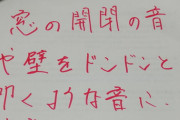 窓の開閉の音
や壁をドンドンと
叩くような音に、